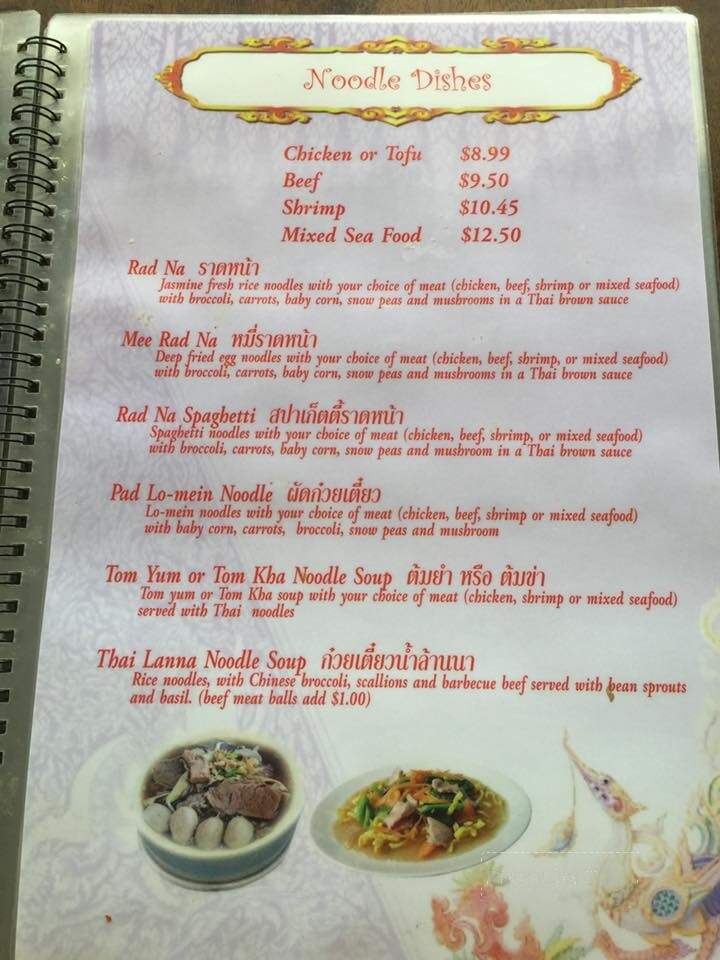 Noodle Dishes
Chicken or Tofu $8.99
Beef $9.50
Shrimp $10.45
Mixed Sea Food $12.50
Rad Na ราดหน้า
Jasmine fresh rice noodles with your choice of meat (chicken, beef, shrimp or mixed seafood)
with broccoli, carrots, baby corn, snow peas and mushrooms in a Thai brown sauce
Mee Rad Na หมี่ราดหน้า
Deep fried egg noodles with your choice of meat (chicken, beef, shrimp, or mixed seafood)
with broccoli, carrots, baby corn, snow peas and mushrooms in a Thai brown sauce
Rad Na Spaghetti สปาเก็ตตี้ราดหน้า
Spaghetti noodles with your choice of meat (chicken, beef, shrimp, or mixed seafood)
with broccoli, carrots, baby corn, snow peas and mushroom in a Thai brown sauce
Pad Lo-mein Noodle ผัดก๋วยเตี๋ยว
Lo-mein noodles with your choice of meat (chicken, beef, shrimp or mixed seafood)
with baby corn, carrots, broccoli, snow peas and mushroom
Tom Yum or Tom Kha Noodle Soup ต้มยำ หรือ ต้มข่า
Tom yum or Tom Kha soup with your choice of meat (chicken, shrimp or mixed seafood)
served with Thai noodles
Thai Lanna Noodle Soup ก๋วยเตี๋ยวน้ำล้านนา
Rice noodles, with Chinese broccoli, scallions and barbecue beef served with bean sprouts
and basil. (beef meat balls add $1.00)